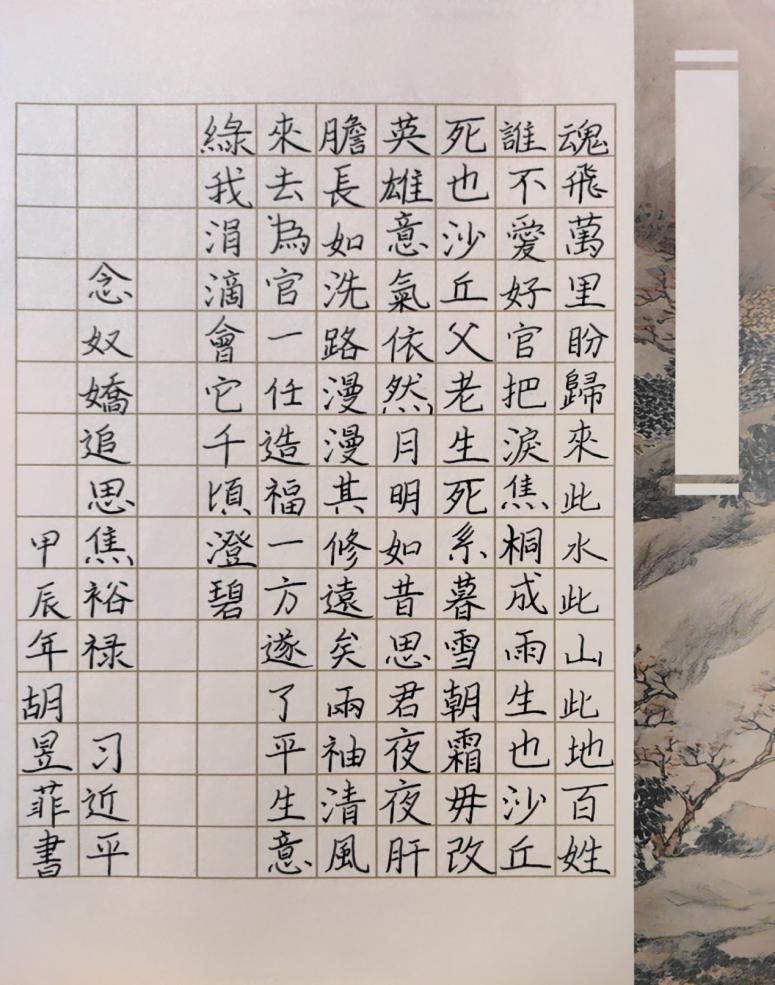 魂飛萬里盼歸來此水此山此地百姓
誰不愛好官把淚焦桐成雨生也沙丘
死也沙丘父老生死系暮雪朝霜毋改
英雄意氣依然月明如昔思君夜夜肝
膽長如洗路漫漫其修遠矣兩袖清風
來去為官一任造福一方遂了平生意
綠我涓滴會它千頃澄碧
念奴嬌追思焦裕禄 习近平
甲辰年胡昱菲書